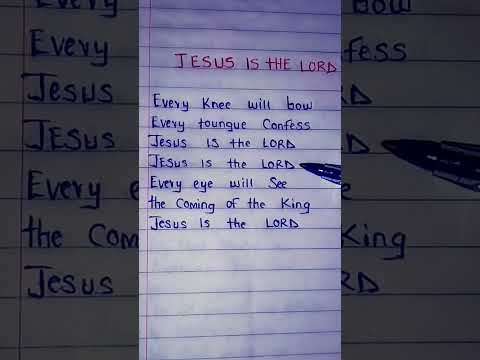 JESUS IS THE LORD
Every Knee will bow
Every toungue Confess
Jesus IS the LORD
JESUS IS the LORD
Every eye will See
the Coming of the King
Jesus Is the LORD